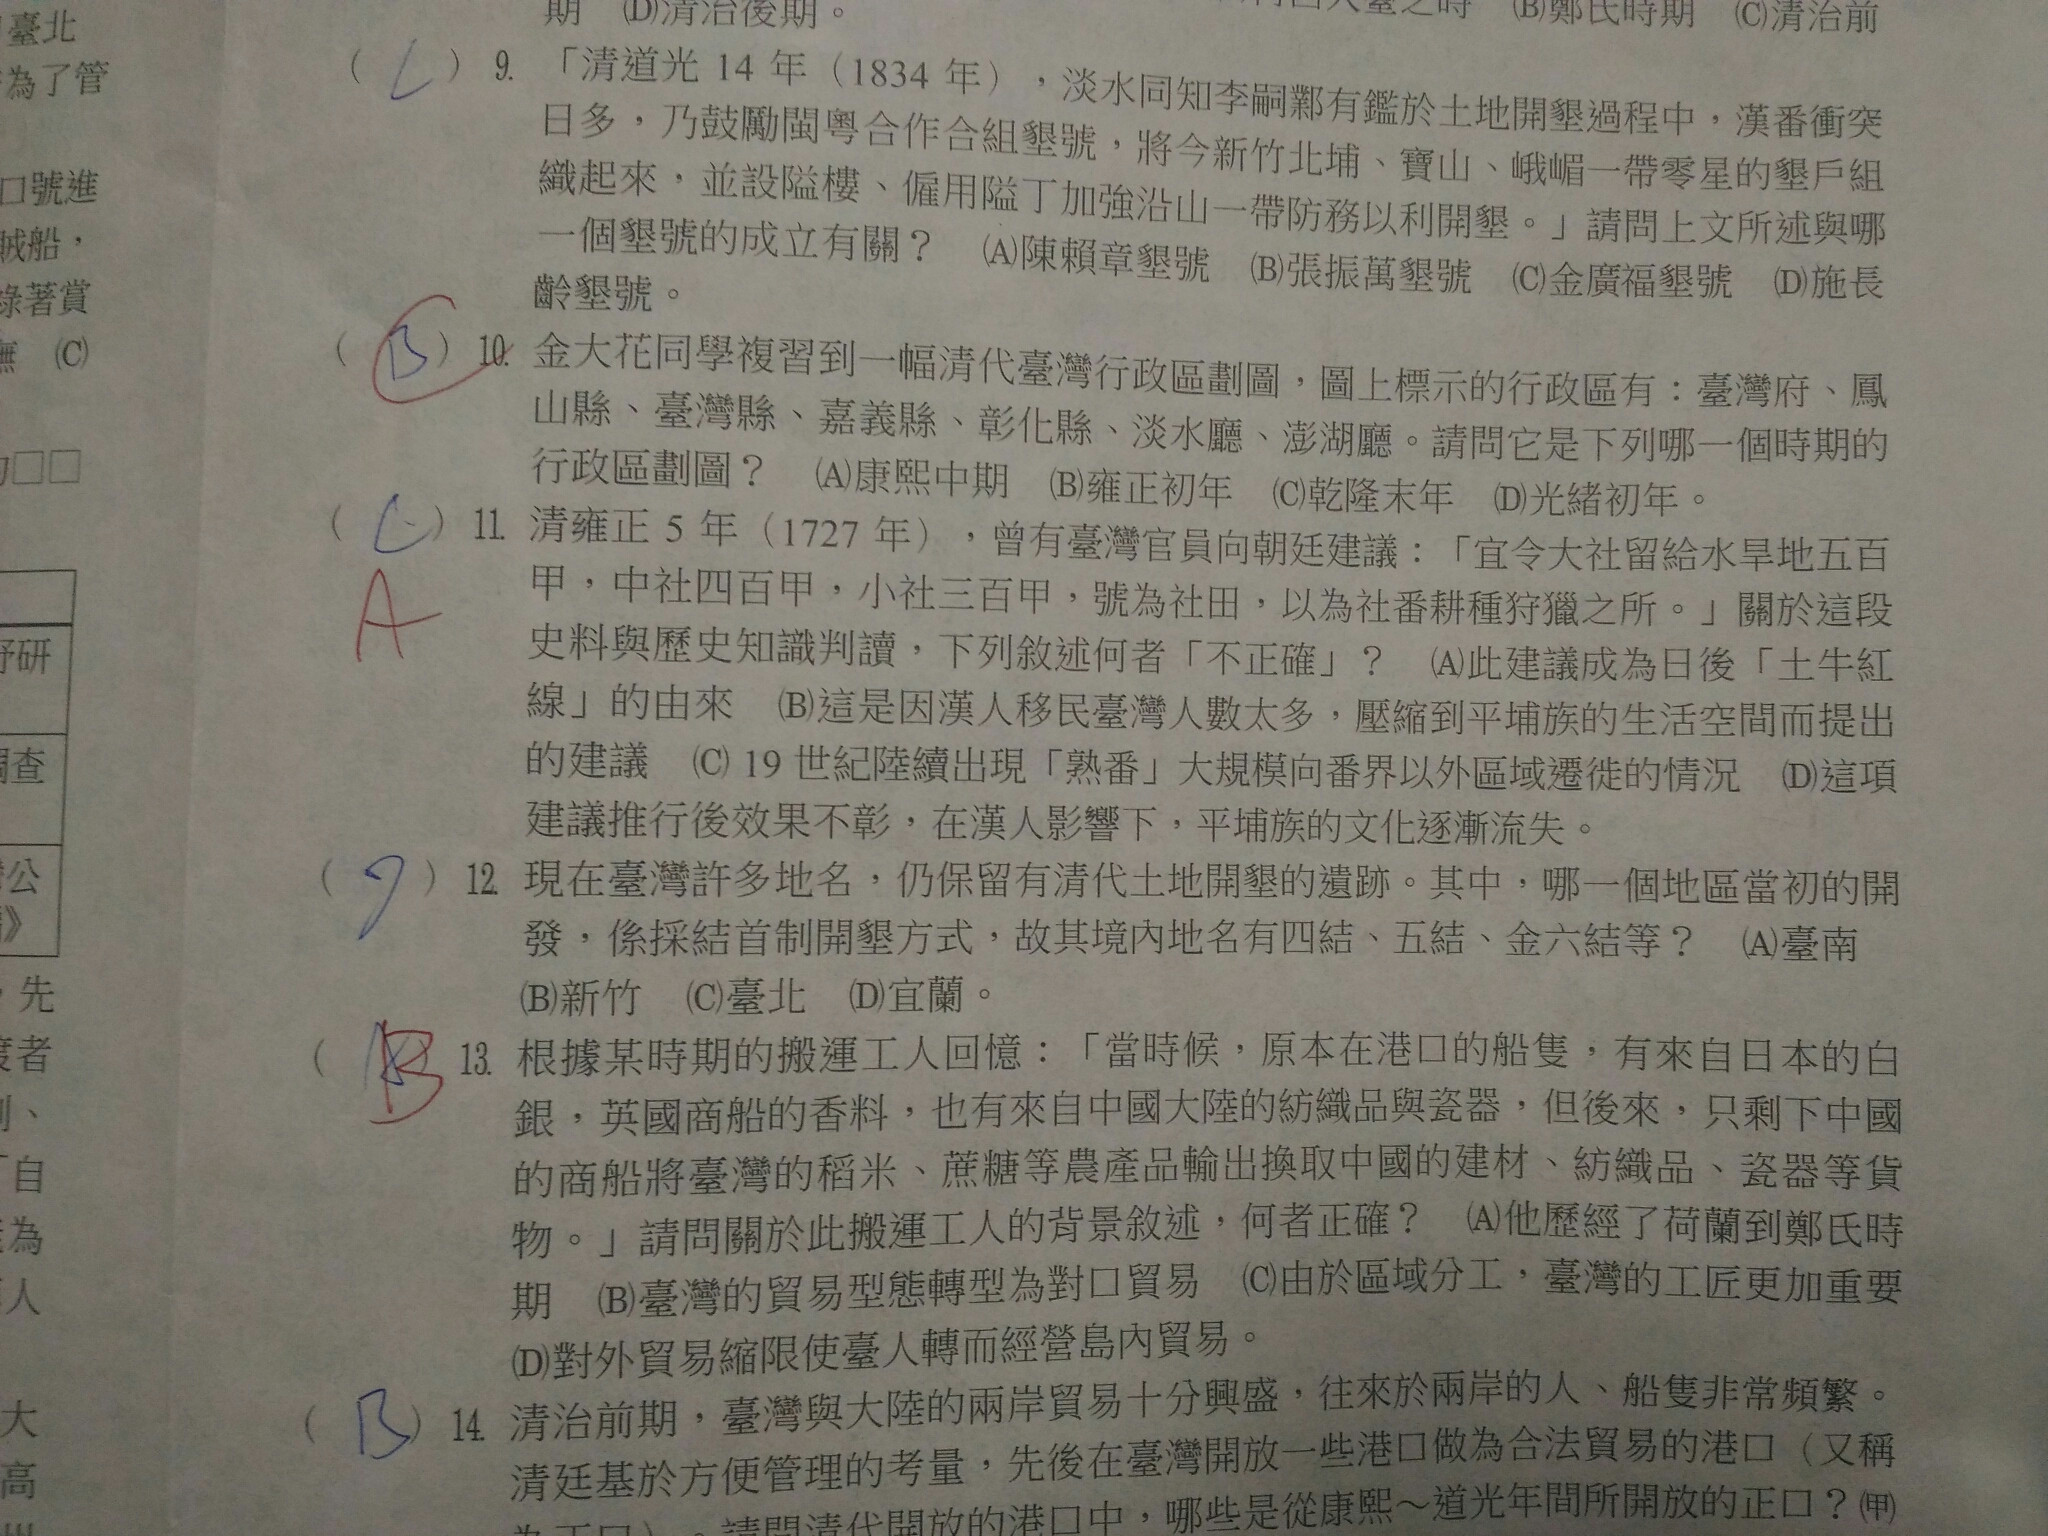 臺北
為了管
口號進
賊船，
錄著賞
撫　(C)
□□
研
調查
公
》
，先
渡者
、
「自
為
人
大
高
期　(D)清治後期。
之時　(B)鄭氏時期　(C)清治前
( C ) 9. 「清道光 14 年（1834 年），淡水同知李嗣鄴有鑑於土地開墾過程中，漢番衝突
日多，乃鼓勵閩粵合作合組墾號，將今新竹北埔、寶山、峨嵋一帶零星的墾戶組
織起來，並設隘樓、僱用隘丁加強沿山一帶防務以利開墾。」請問上文所述與哪
一個墾號的成立有關？　(A)陳賴章墾號　(B)張振萬墾號　(C)金廣福墾號　(D)施長
齡墾號。
( B ) 10. 金大花同學複習到一幅清代臺灣行政區劃圖，圖上標示的行政區有：臺灣府、鳳
山縣、臺灣縣、嘉義縣、彰化縣、淡水廳、澎湖廳。請問它是下列哪一個時期的
行政區劃圖？　(A)康熙中期　(B)雍正初年　(C)乾隆末年　(D)光緒初年。
( C ) 11. 清雍正 5 年（1727 年），曾有臺灣官員向朝廷建議：「宜令大社留給水旱地五百
A
甲，中社四百甲，小社三百甲，號為社田，以為社番耕種狩獵之所。」關於這段
史料與歷史知識判讀，下列敘述何者「不正確」？　(A)此建議成為日後「土牛紅
線」的由來　(B)這是因漢人移民臺灣人數太多，壓縮到平埔族的生活空間而提出
的建議　(C) 19 世紀陸續出現「熟番」大規模向番界以外區域遷徙的情況　(D)這項
建議推行後效果不彰，在漢人影響下，平埔族的文化逐漸流失。
( D ) 12. 現在臺灣許多地名，仍保留有清代土地開墾的遺跡。其中，哪一個地區當初的開
發，係採結首制開墾方式，故其境內地名有四結、五結、金六結等？　(A)臺南
(B)新竹　(C)臺北　(D)宜蘭。
( B 13. 根據某時期的搬運工人回憶：「當時候，原本在港口的船隻，有來自日本的白
銀，英國商船的香料，也有來自中國大陸的紡織品與瓷器，但後來，只剩下中國
的商船將臺灣的稻米、蔗糖等農產品輸出換取中國的建材、紡織品、瓷器等貨
物。」請問關於此搬運工人的背景敘述，何者正確？　(A)他歷經了荷蘭到鄭氏時
期　(B)臺灣的貿易型態轉型為對口貿易　(C)由於區域分工，臺灣的工匠更加重要
(D)對外貿易縮限使臺人轉而經營島內貿易。
( B ) 14. 清治前期，臺灣與大陸的兩岸貿易十分興盛，往來於兩岸的人、船隻非常頻繁。
清廷基於方便管理的考量，先後在臺灣開放一些港口做為合法貿易的港口（又稱
為正口）。請問清代開放的港口中，哪些是從康熙～道光年間所開放的正口？(甲)